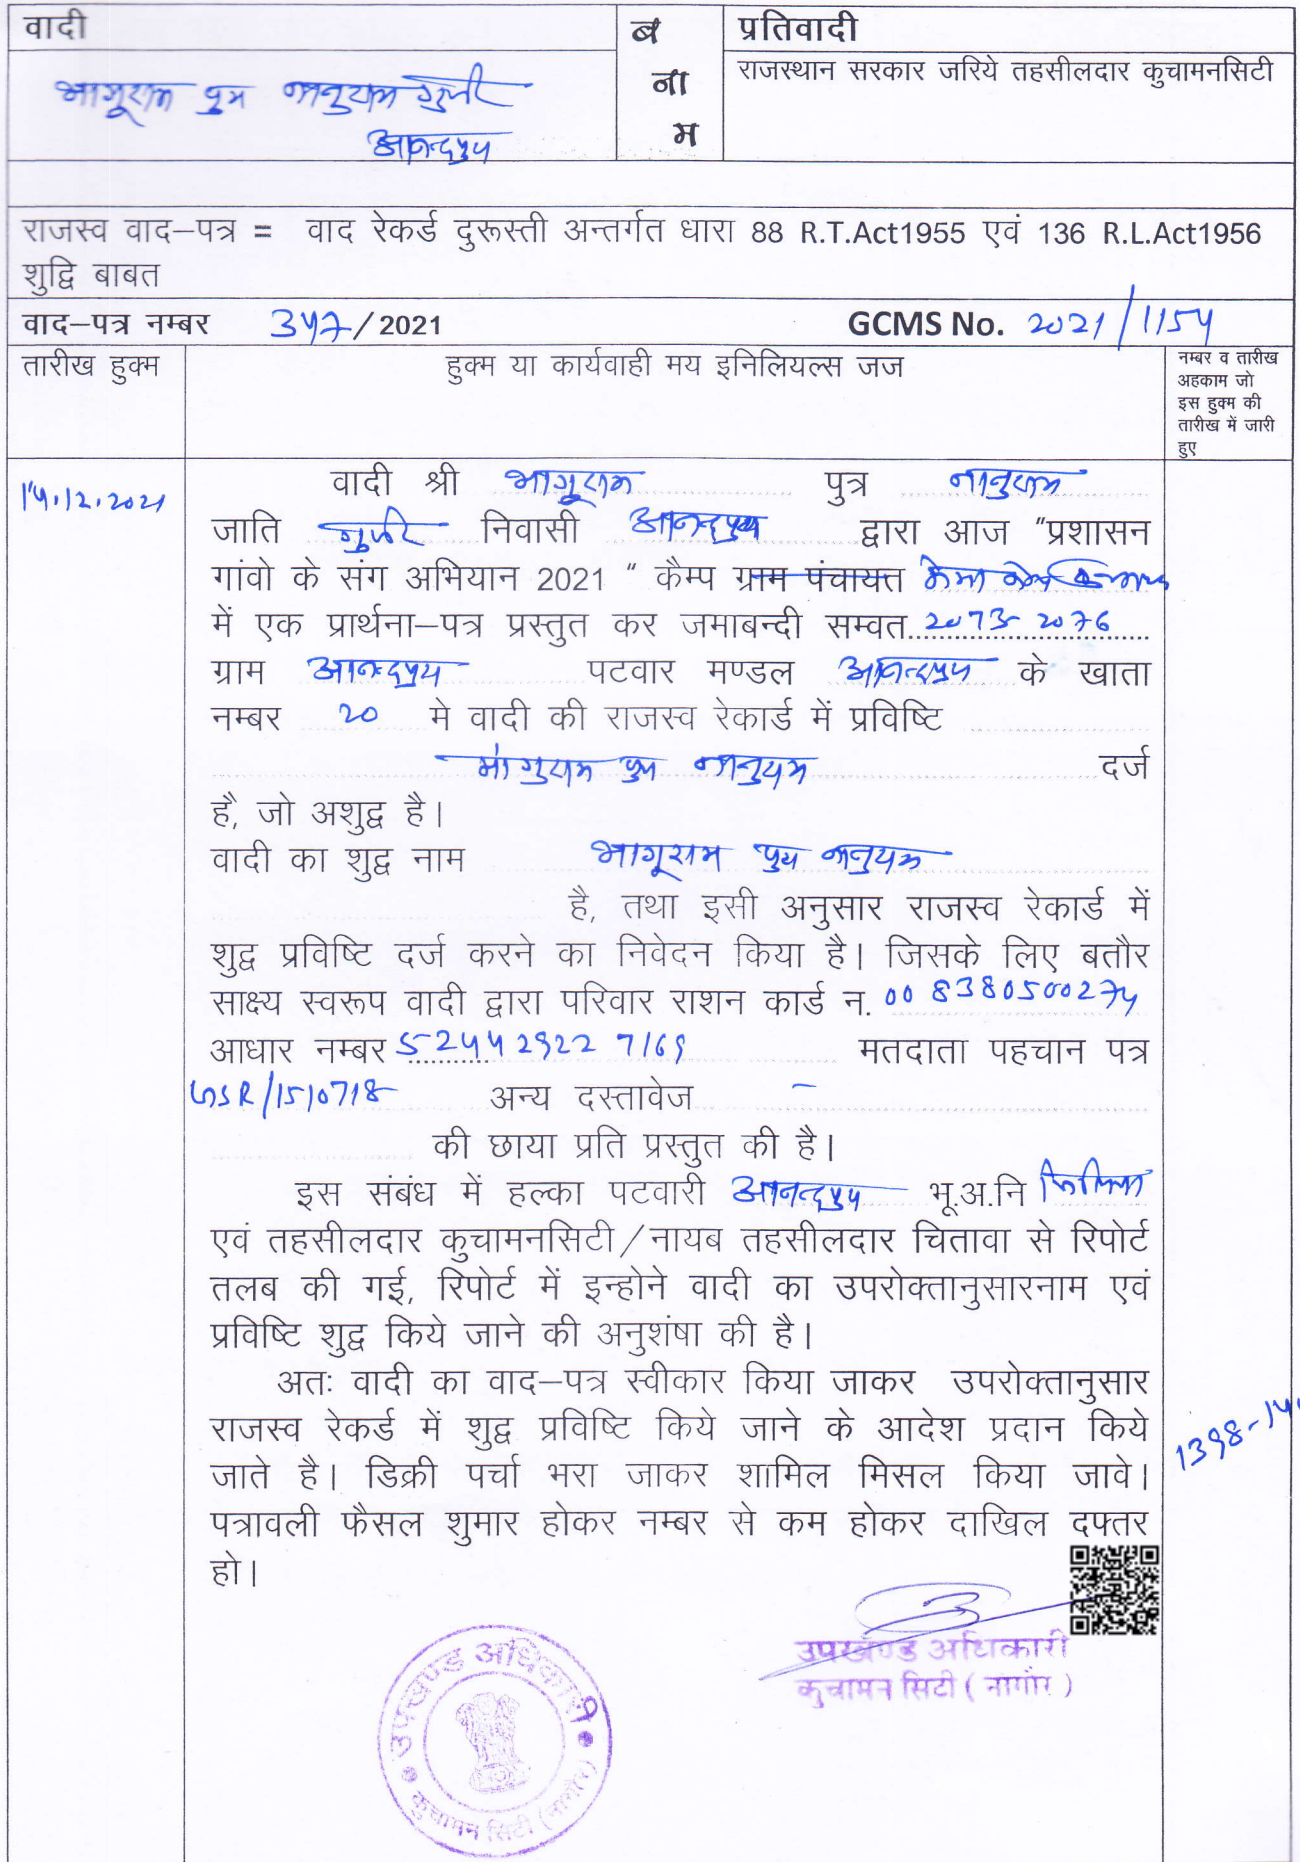 वादी
ब
ना
म
प्रतिवादी
भागूराम पुत्र नानुराम गुर्जर
आनन्दपुरा
राजस्थान सरकार जरिये तहसीलदार कुचामनसिटी
राजस्व वाद–पत्र = वाद रेकर्ड दुरूस्ती अन्तर्गत धारा 88 R.T.Act1955 एवं 136 R.L.Act1956
शुद्वि बाबत
वाद–पत्र नम्बर 347/2021 GCMS No. 2021/1154
तारीख हुक्म
हुक्म या कार्यवाही मय इनिलियल्स जज
नम्बर व तारीख
अहकाम जो
इस हुक्म की
तारीख में जारी
हुए
14.12.2021
वादी श्री भागूराम पुत्र नानुराम
जाति गुर्जर निवासी आनन्दपुरा द्वारा आज "प्रशासन
गांवो के संग अभियान 2021 " कैम्प ग्राम पंचायत
में एक प्रार्थना–पत्र प्रस्तुत कर जमाबन्दी सम्वत 2073-2076
ग्राम आनन्दपुरा पटवार मण्डल आनन्दपुरा के खाता
नम्बर 20 मे वादी की राजस्व रेकार्ड में प्रविष्टि
मांगुराम पुत्र नानुराम दर्ज
है, जो अशुद्व है।
वादी का शुद्व नाम भागूराम पुत्र नानुराम
है, तथा इसी अनुसार राजस्व रेकार्ड में
शुद्व प्रविष्टि दर्ज करने का निवेदन किया है। जिसके लिए बतौर
साक्ष्य स्वरूप वादी द्वारा परिवार राशन कार्ड न. 00 8380500274
आधार नम्बर 5244 2922 7169 मतदाता पहचान पत्र
/1510718 अन्य दस्तावेज –
की छाया प्रति प्रस्तुत की है।
इस संबंध में हल्का पटवारी आनन्दपुरा भू.अ.नि
एवं तहसीलदार कुचामनसिटी/नायब तहसीलदार चितावा से रिपोर्ट
तलब की गई, रिपोर्ट में इन्होने वादी का उपरोक्तानुसारनाम एवं
प्रविष्टि शुद्व किये जाने की अनुशंषा की है।
अतः वादी का वाद–पत्र स्वीकार किया जाकर उपरोक्तानुसार
राजस्व रेकर्ड में शुद्व प्रविष्टि किये जाने के आदेश प्रदान किये
जाते है। डिक्री पर्चा भरा जाकर शामिल मिसल किया जावे।
पत्रावली फैसल शुमार होकर नम्बर से कम होकर दाखिल दफ्तर
हो।
1398-14
उपखण्ड अधिकारी
कुचामन सिटी ( नागौर )
उपखण्ड अधिकारी
कुचामन सिटी (नागौर)